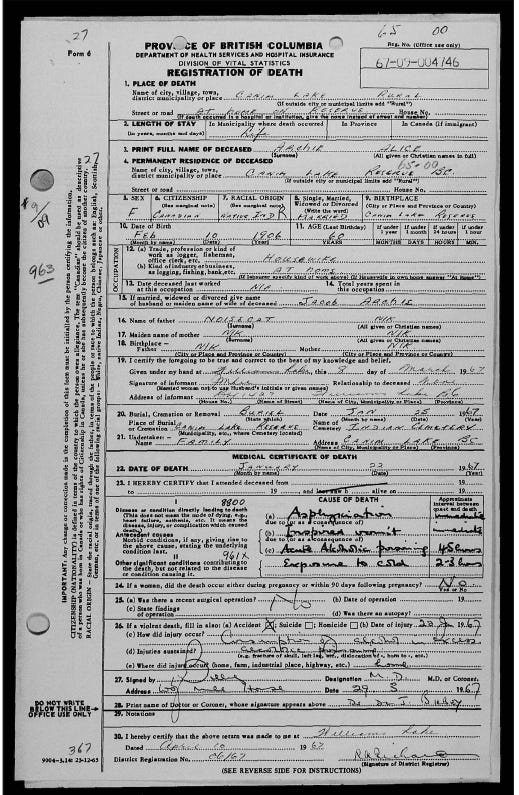 27
65 00
Form 6
PROVINCE OF BRITISH COLUMBIA
DEPARTMENT OF HEALTH SERVICES AND HOSPITAL INSURANCE
DIVISION OF VITAL STATISTICS
REGISTRATION OF DEATH
Reg. No. (Office use only)
67-09-004746
1. PLACE OF DEATH
Name of city, village, town, district municipality or place CANIM LAKE RURAL
(If outside city or municipal limits add "Rural")
Street or road AT HOME ON RESERVE House No.
(If death occurred in a hospital or institution, give the name instead of street and number)
2. LENGTH OF STAY In Municipality where death occurred In Province In Canada (if immigrant)
(in years, months and days) Life
3. PRINT FULL NAME OF DECEASED ARCHIE ALICE
(Surname) (All given or Christian names in full)
4. PERMANENT RESIDENCE OF DECEASED 65-09
Name of city, village, town, district municipality or place CANIM LAKE RESERVE BC.
(If outside city or municipal limits add "Rural")
Street or road House No.
5. SEX 6. CITIZENSHIP 7. RACIAL ORIGIN 8. Single, Married, Widowed or Divorced 9. BIRTHPLACE
(See marginal note) (See marginal note) (Write the word) (City or Place and Province or Country)
F CANADIAN NATIVE IND R CANIM LAKE RESERVE
10. Date of Birth 11. AGE (Last Birthday) If under 1 year If under 1 month If under 1 day If under 1 hour
FEB 10 1906 60
(Month by name) (Day) (Year) YEARS MONTHS DAYS HOURS MINUTES
OCCUPATION
12. (a) Trade, profession or kind of work as logger, fisherman, office clerk, etc. HOUSEWIFE
(b) Kind of industry or business, as logging, fishing, bank, etc. AT HOME
(If labourer specify kind of work above) (If Housewife in own home answer "At Home")
13. Date deceased last worked at this occupation N/K 14. Total years spent in this occupation
15. If married, widowed or divorced give name of husband or maiden name of wife of deceased JACOB ARCHIE
16. Name of father NOISECAT N/K
(Surname) (All given or Christian names)
17. Maiden name of mother N/K N/K
(Surname) (All given or Christian names)
18. Birthplace— Father N/K Mother N/K
(City or Place and Province or Country) (City or Place and Province or Country)
19. I certify the foregoing to be true and correct to the best of my knowledge and belief.
Given under my hand at Williams Lake, this 8 day of March 1967
Signature of informant Relationship to deceased
(Married woman not to use husband's initials or given name)
Address of informant BC
(House No.) (Name of Street) (City or Municipality, Place or Province)
20. Burial, Cremation or Removal BURIAL Date JAN 25 1967
(State which) (Month by name) (Day) (Year)
Place of Burial or Cremation CANIM LAKE RESERVE Name of Cemetery INDIAN CEMETERY
(Municipality, etc., where Cemetery located)
21. Undertaker: Name FAMILY Address CANIM LAKE BC
MEDICAL CERTIFICATE OF DEATH
22. DATE OF DEATH JANUARY 22 1967
(Month by name) (Day) (Year)
23. I HEREBY CERTIFY that I attended deceased from
to 19 and last saw h alive on 19
I 8800 CAUSE OF DEATH Approximate interval between onset and death
Disease or condition directly leading to death (a) Asphyxiation immediate
(This does not mean the mode of dying, e.g., heart failure, asthenia, etc. It means the disease, injury, or complication which caused death.) due to (or as a consequence of)
Antecedent causes (b) Inspired vomit immediate
Morbid conditions, if any, giving rise to the above cause, stating the underlying condition last. due to (or as a consequence of)
(c) Acute Alcoholic poisoning 45 hours
II 961X
Other significant conditions contributing to the death, but not related to the disease or condition causing it. Exposure to cold 2-3 hours
24. If a woman, did the death occur either during pregnancy or within 90 days following pregnancy? No
Yes or No
25. (a) Was there a recent surgical operation? No (b) Date of operation 19
(c) State findings of operation (d) Was there an autopsy?
26. If a violent death, fill in also: (a) Accident X; Suicide ; Homicide (b) Date of injury 22 Ja 1967
(c) How did injury occur? Consumption of alcohol in excess
(d) Injuries sustained? alcoholic poisoning
(e.g. fracture of skull, left leg, etc., dislocation of , burn to , etc.)
(e) Where did injury occur? (home, farm, industrial place, highway, etc.) home
27. Signed by Designation M.D. M.D. or Coroner.
Address 100 mile House Date 29 3 1967
28. Print name of Doctor or Coroner, whose signature appears above
29. Notations
30. I hereby certify that the above return was made to me at Williams Lake
Dated April 10 1967
District Registration No. 06/67
(Signature of District Registrar)
(SEE REVERSE SIDE FOR INSTRUCTIONS)
IMPORTANT: Any change or correction made in the completion of this form must be initialled by the person certifying the information.
DO NOT WRITE BELOW THIS LINE— OFFICE USE ONLY
963
367